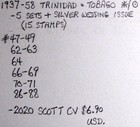 1937-58 TRINIDAD + TOBAGO */⊙
- 5 SETS + SILVER WEDDING ISSUE
(15 STAMPS)
#47-49
62-63
64
66-69
70-71
86-88
-2020 SCOTT CV $6.90
USD.